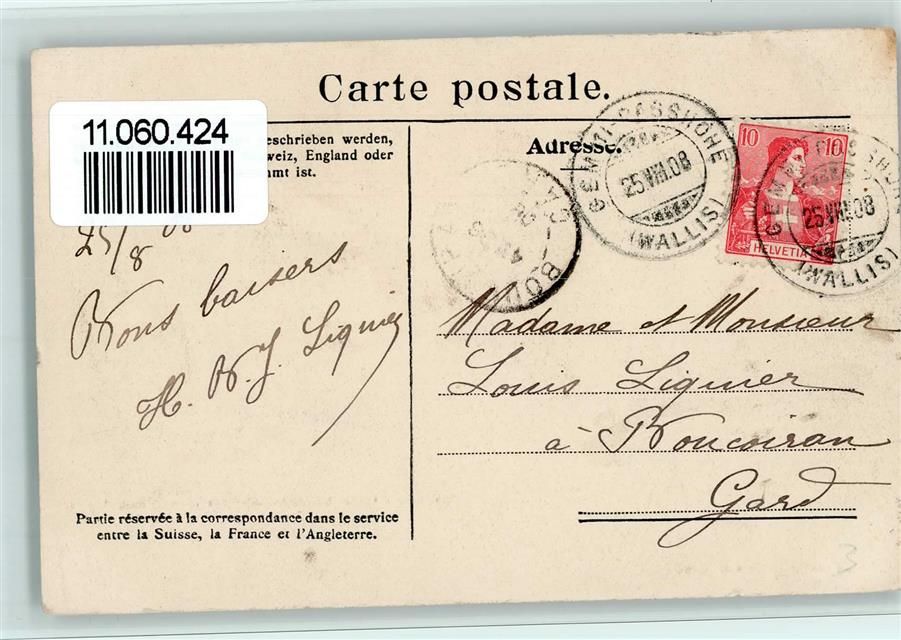 Carte postale.
11.060.424
eschrieben werden,
weiz, England oder
mt ist.
25/8
Bons baisers
H. N. J. Liquier
Partie réservée à la correspondance dans le service
entre la Suisse, la France et l'Angleterre.
Adresse.
GEMMI-PASSHÖHE
25.VIII.08
(WALLIS)
10 10
HELVETIA
25.VIII.08
(WALLIS)
Madame et Monsieur
Louis Liquier
à Boucoiran
Gard
3